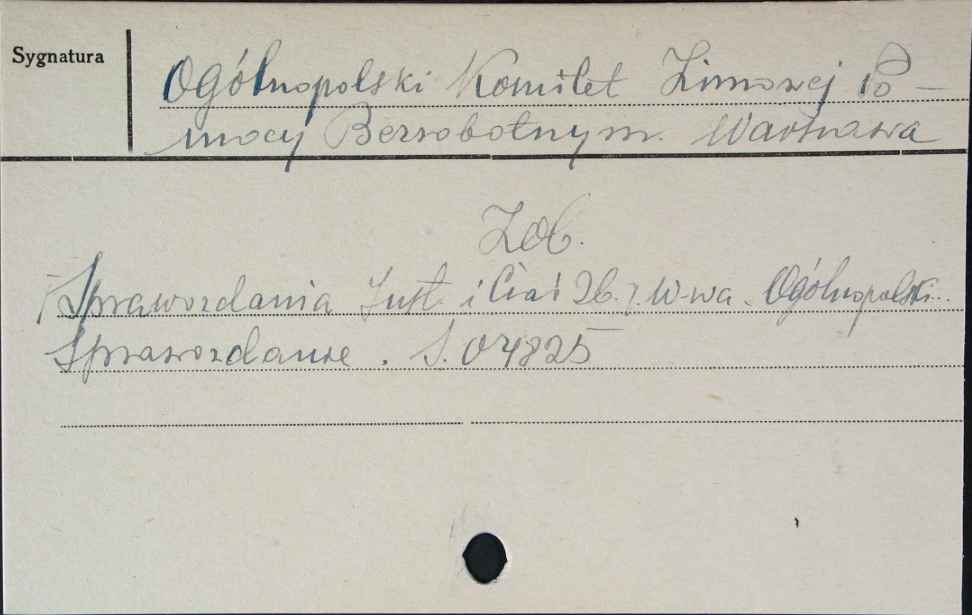 Sygnatura
Ogólnopolski Komitet Zimowej Po-
mocy Bezrobotnym. Warszawa
Zob.
Sprawozdania Inst. i Ciał Zb. 7. W-wa. Ogólnopolski..
Sprawozdanie. S. 04825